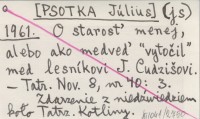 [PSOTKA Július] (js)
1961. O starosť menej,
alebo ako medveď "vytočil"
med lesníkovi J. Cudzišovi.
– Tatr. Nov. 8, nr 40: 3.
Zdarzenie z niedźwiedziem
koło Tatrz. Kotliny.